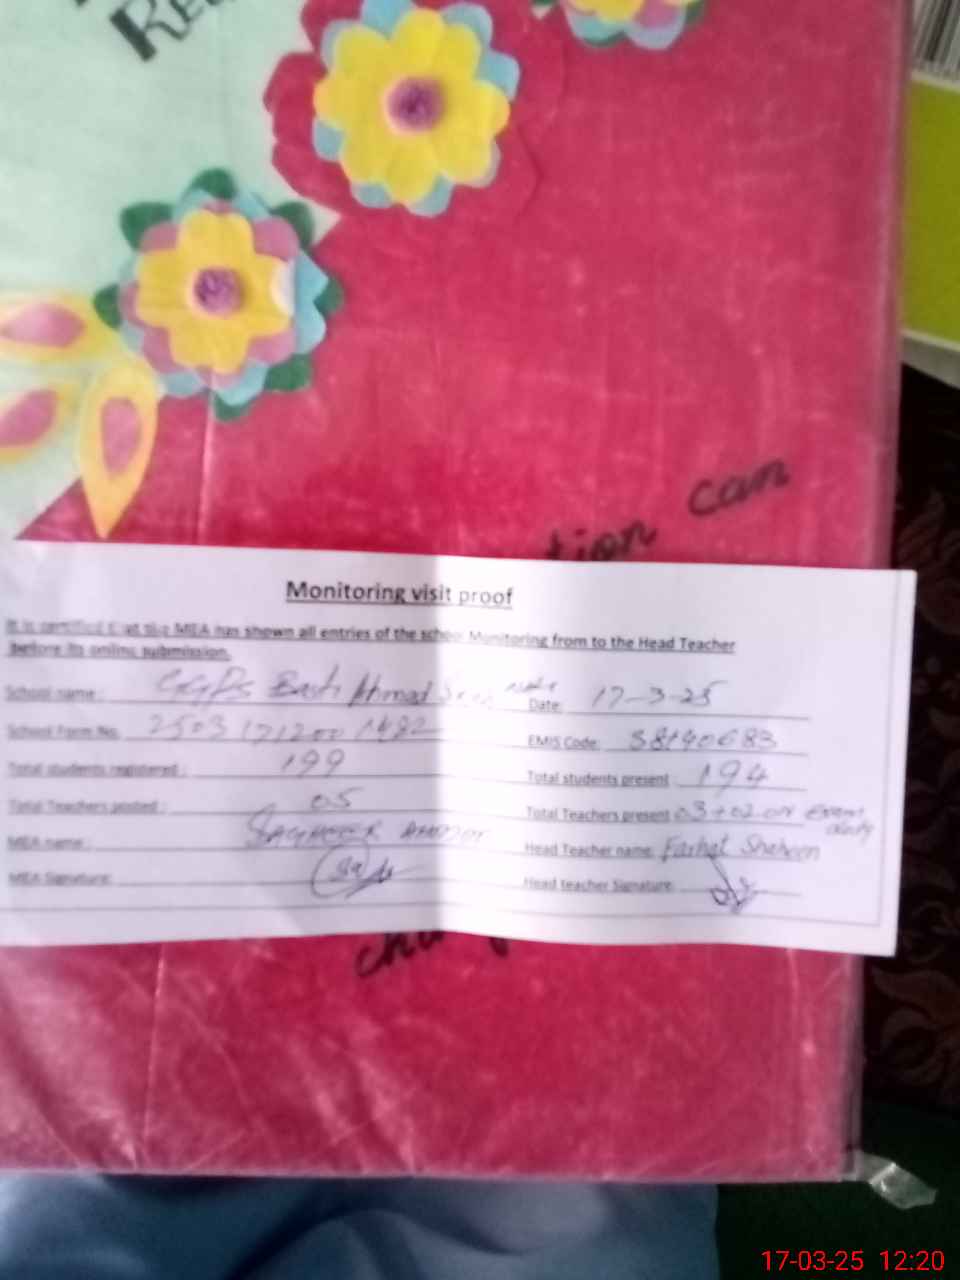 Monitoring visit proof
It is certified that the MEA has shown all entries of the school Monitoring from to the Head Teacher
before its online submission.
School name: GGPS Basti Ahmad Date: 17-3-25
School Form No. EMIS Code:
Total students registered: 199 Total students present: 194
Total Teachers posted: 05 Total Teachers present 03+02 on Exam duty
MEA name: SAGHEER AHMAD Head Teacher name: Farhat Shaheen
MEA Signature: Head teacher Signature:
can
17-03-25 12:20